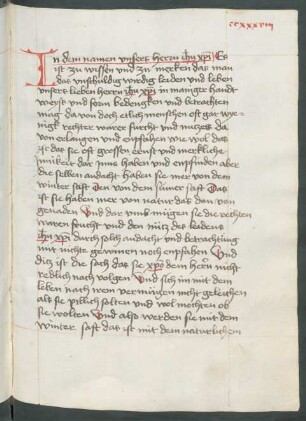 ccxxxviij
In dem namen unsers herrn ihu xpi Es
ist zu wissen und zu mercken das man
das unschuldig wirdig leiden und leben
unsers lieben herrn ihu xpi in maniger handt
weyß und form bedencken und betrachten
mag da von doch etlich menschen oft gar wye
nigk rechter warer frucht und nutzes da
von erlangen und enpfahen wie wol das
ist das sie oft grossen ernst und merkliche
mükeit dar inns haben und enpfinden aber
die selben andacht haben sie mer von dem
winter saft den von dem sumer saft Das
ist sie haben mer von natur das dan von
genaden Und dar umb mügen sie die rechten
waren frucht und den nütz des leidens
ihu xpi durch solh andacht und betrachtung
mit nichte gewinnen noch enpfahen Und
ditz ist die sach das sie xpo dem herrn nicht
redlich nach volgen Und sich im mit dem
leben nach irem vermügen nicht geleichen
alß sie pillich solten und wol möchten ob
sie wolten Und also werden sie mit dem
winter saft das ist mit dem naturlichem